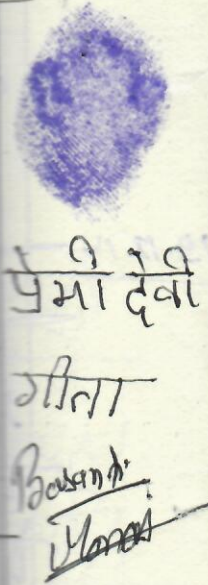 प्रेमी देवी
गीता
Basanti